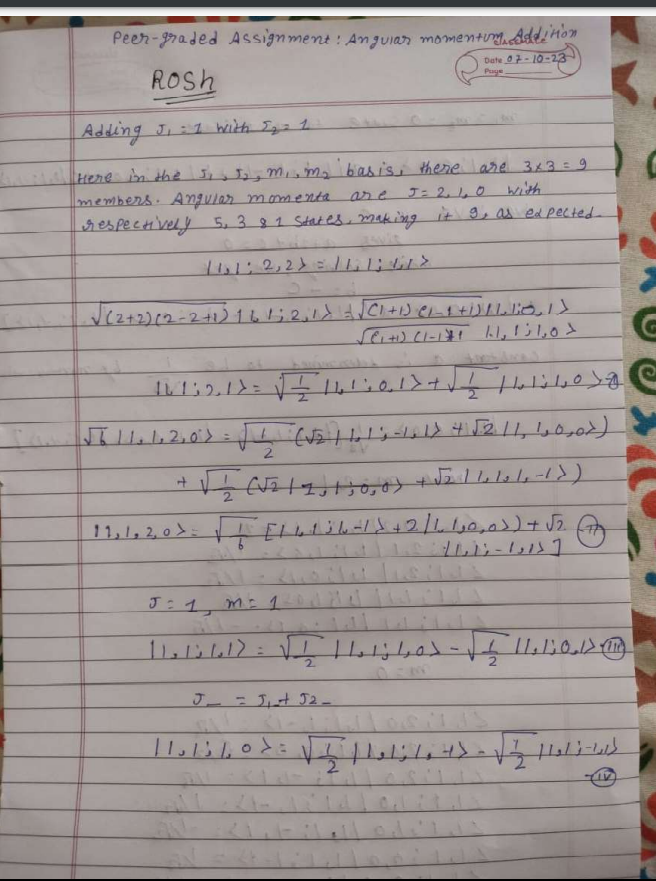 Peer-graded Assignment: Angular momentum Addition
Date 07-10-23
Page
ROSH
Adding J₁ = 1 with J₂ = 1
Here in the J₁, J₂, m₁, m₂ basis, there are 3×3 = 9
members. Angular momenta are J = 2, 1, 0 with
respectively 5, 3 & 1 states, making it 9, as expected.
|1,1; 2,2> = |1,1; 1,1>
√(2+2)(2-2+1) |1,1; 2,1> = √(1+1)(1-1+1) |1,1;0,1>
√(1+1)(1-1+1 |1,1;1,0>
|1,1;2,1> = √1/2 |1,1;0,1> + √1/2 |1,1;1,0>
√6 |1,1,2,0> = √1/2 (√2|1,1;-1,1> + √2|1,1,0,0>)
+ √1/2 (√2|1,1;0,0> + √2|1,1,1,-1>)
|1,1,2,0> = √1/6 [|1,1;1,-1> + 2|1,1,0,0>) + √2 (ii)
|1,1;-1,1>]
J = 1, m = 1
|1,1;1,1> = √1/2 |1,1;1,0> - √1/2 |1,1;0,1> (iii)
J₋ = J₁₋ + J2₋
|1,1;1,0> = √1/2 |1,1;1,-1> - √1/2 |1,1;-1,1>
- (iv)